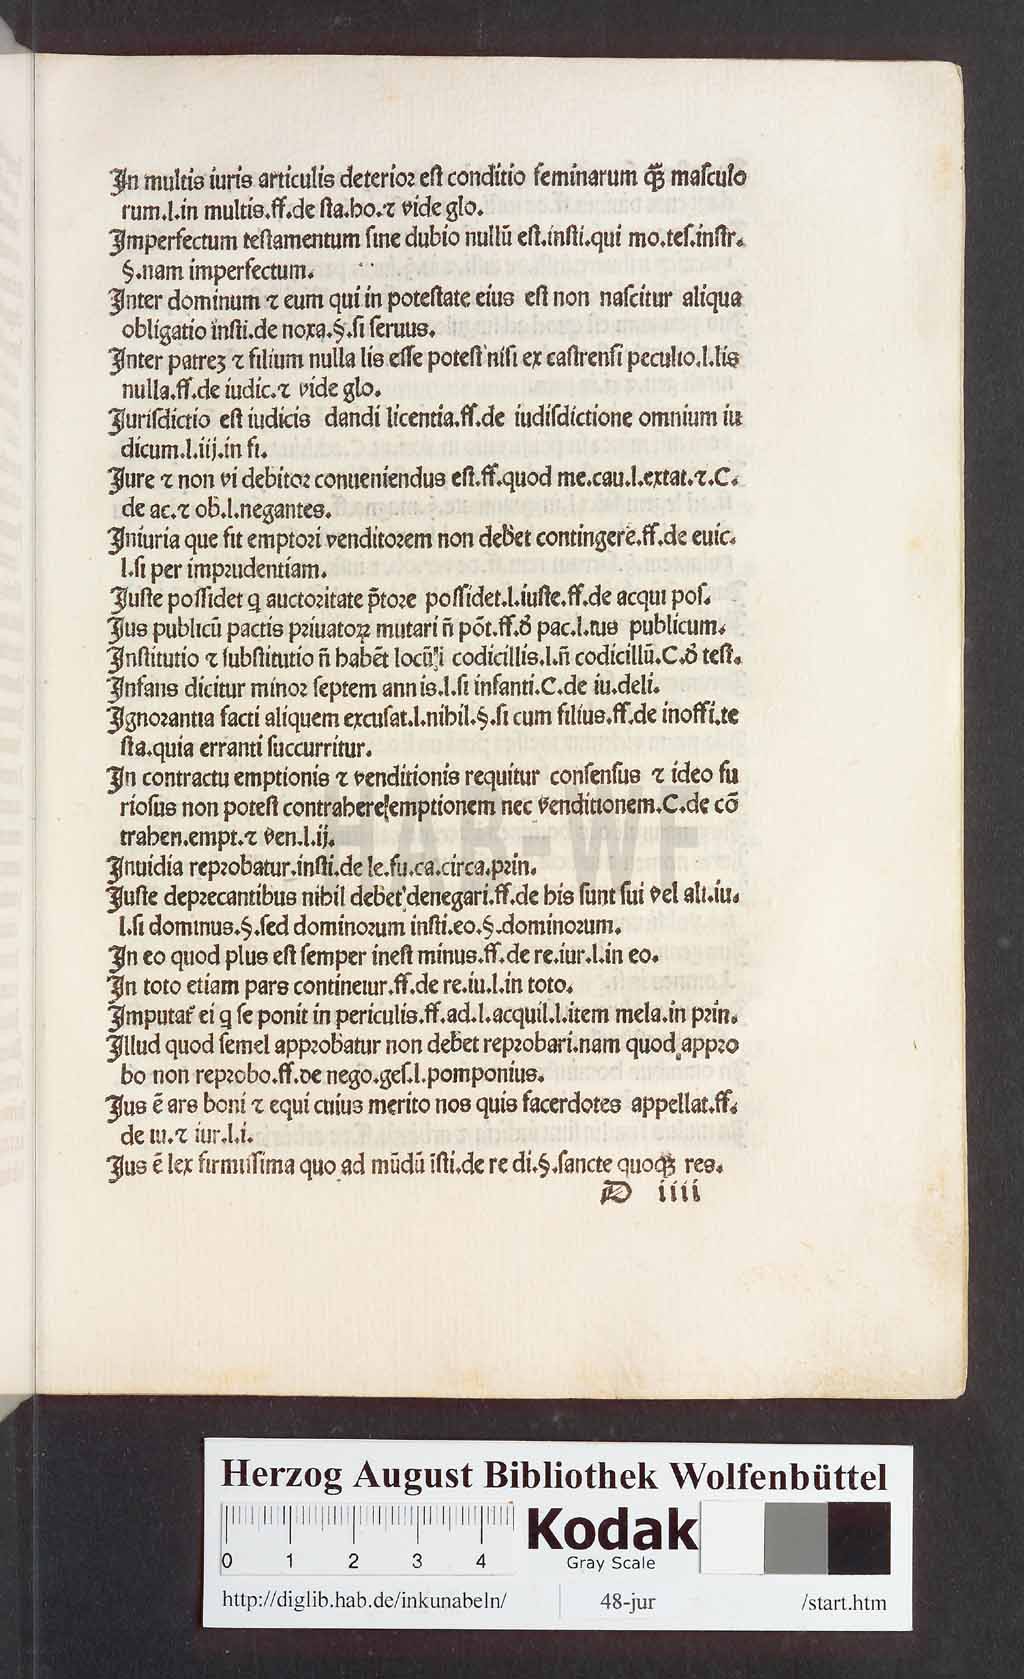 In multis iuris articulis deterior est conditio feminarum qȝ̄ masculo
rum.l.in multis.ff.de sta.ho.⁊ vide glo.
Imperfectum testamentum sine dubio nullū est.insti.qui mo.tes.instr.
§.nam imperfectum.
Inter dominum ⁊ eum qui in potestate eius est non nascitur aliqua
obligatio insti.de noxa.§.si seruus.
Inter patreȝ ⁊ filium nulla lis esse potest nisi ex castrensi peculio.l.lis
nulla.ff.de iudic.⁊ vide glo.
Iurisdictio est iudicis dandi licentia.ff.de iudisdictione omnium iu
dicum.l.iij.in fi.
Iure ⁊ non vi debitor conueniendus est.ff.quod me.cau.l.extat.⁊.C.
de ac.⁊ ob.l.negantes.
Iniuria que fit emptori venditorem non debet contingere.ff.de euic.
l.si per imprudentiam.
Iuste possidet q auctoritate p̄tore possidet.l.iuste.ff.de acqui pos.
Ius publicū pactis priuatoꝝ mutari n̄ pōt.ff.d̄ pac.l.ius publicum.
Institutio ⁊ substitutio n̄ habēt locū i codicillis.l.n̄ codicillū.C.d̄ test.
Infans dicitur minor septem annis.l.si infanti.C.de iu.deli.
Ignorantia facti aliquem excusat.l.nihil.§.si cum filius.ff.de inoffi.te
sta.quia erranti succurritur.
In contractu emptionis ⁊ venditionis requitur consensus ⁊ ideo fu
riosus non potest contrahere emptionem nec venditionem.C.de cō
trahen.empt.⁊ ven.l.ij.
Inuidia reprobatur.insti.de le.fu.ca.circa.prin.
Iuste deprecantibus nihil debet denegari.ff.de his sunt sui vel ali.iu.
l.si dominus.§.sed dominorum insti.eo.§.dominorum.
In eo quod plus est semper inest minus.ff.de re.iur.l.in eo.
In toto etiam pars continetur.ff.de re.iu.l.in toto.
Imputat᷑ ei q se ponit in periculis.ff.ad.l.acquil.l.item mela.in prin.
Illud quod semel approbatur non debet reprobari.nam quod appro
bo non reprobo.ff.de nego.ges.l.pomponius.
Ius ē ars boni ⁊ equi cuius merito nos quis sacerdotes appellat.ff.
de iu.⁊ iur.l.i.
Ius ē lex firmissima quo ad mūdū īsti.de re di.§.sancte quoqȝ res.
D iiii
HAB-WF
Herzog August Bibliothek Wolfenbüttel
0 1 2 3 4
Kodak
Gray Scale
http://diglib.hab.de/inkunabeln/ 48-jur /start.htm